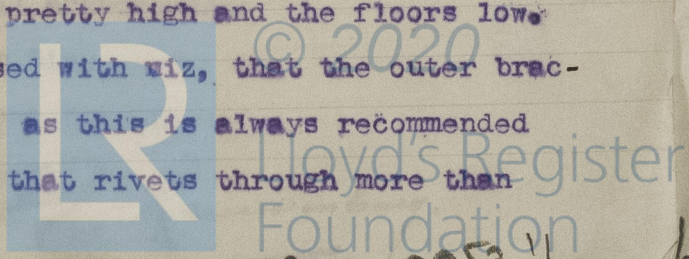 pretty high and the floors low.
sed with miz, that the outer brac-
as this is always recommended
that rivets through more than
© 2020
LR
Lloyd's Register
Foundation